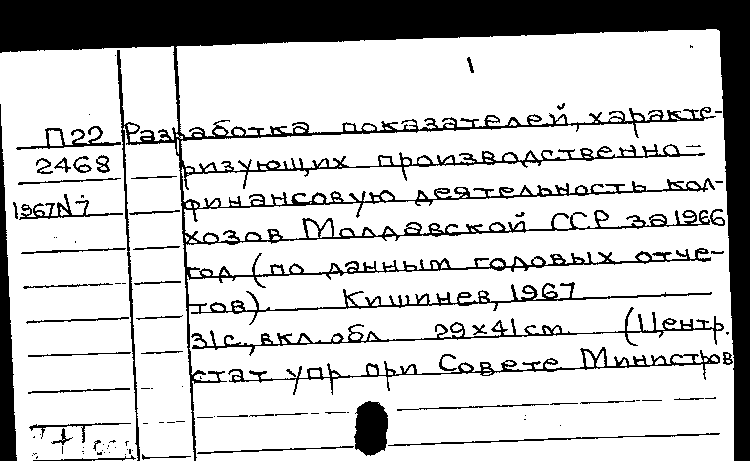 1
П22 Разработка показателей, характе-
2468 ризующих производственно-
1967N7 финансовую деятельность кол-
хозов Молдавской ССР за 1966
год (по данным годовых отче-
тов). Кишинев, 1967
31с., вкл. обл. 29×41см. (Центр.
стат упр при Совете Министров